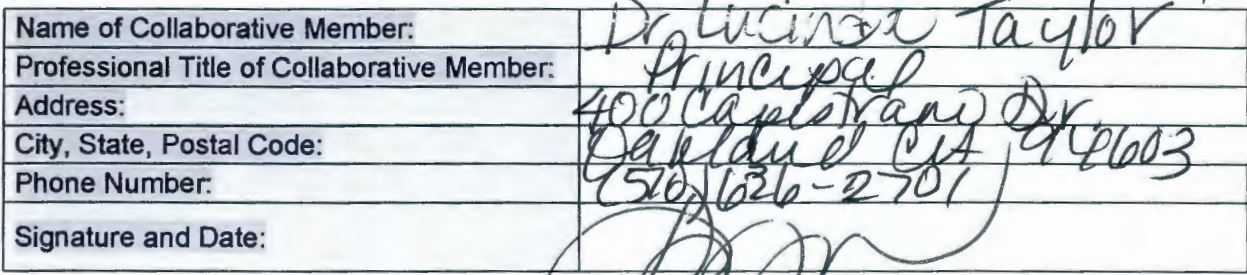 Name of Collaborative Member: Dr. Lucinda Taylor
Professional Title of Collaborative Member: Principal
Address: 400 Capistrano Dr.
City, State, Postal Code: Oakland CA 94603
Phone Number: (510) 626-2701
Signature and Date: